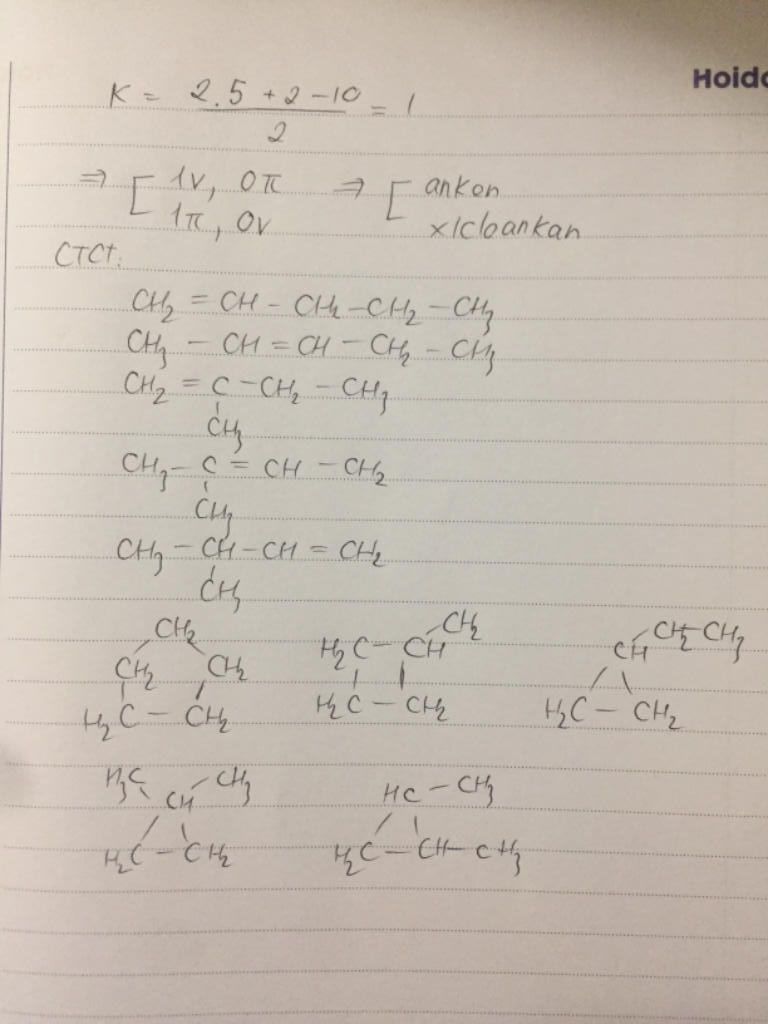 Hoido
K = (2.5 + 2 - 10)/2 = 1
⇒ [ 1v, 0π ⇒ [ anken
1π, 0v xicloankan
CTCT:
CH₂ = CH - CH₂ - CH₂ - CH₃
CH₃ - CH = CH - CH₂ - CH₃
CH₂ = C - CH₂ - CH₃
CH₃
CH₃ - C = CH - CH₂
CH₃
CH₃ - CH - CH = CH₂
CH₃
CH₂ CH₂ CH₂ H₂C - CH₂
H₂C - CH - CH₂ H₂C - CH₂
CH - CH₂ - CH₃ H₂C - CH₂
H₃C CH - CH₃ H₂C - CH₂
HC - CH₃ H₂C - CH - CH₃